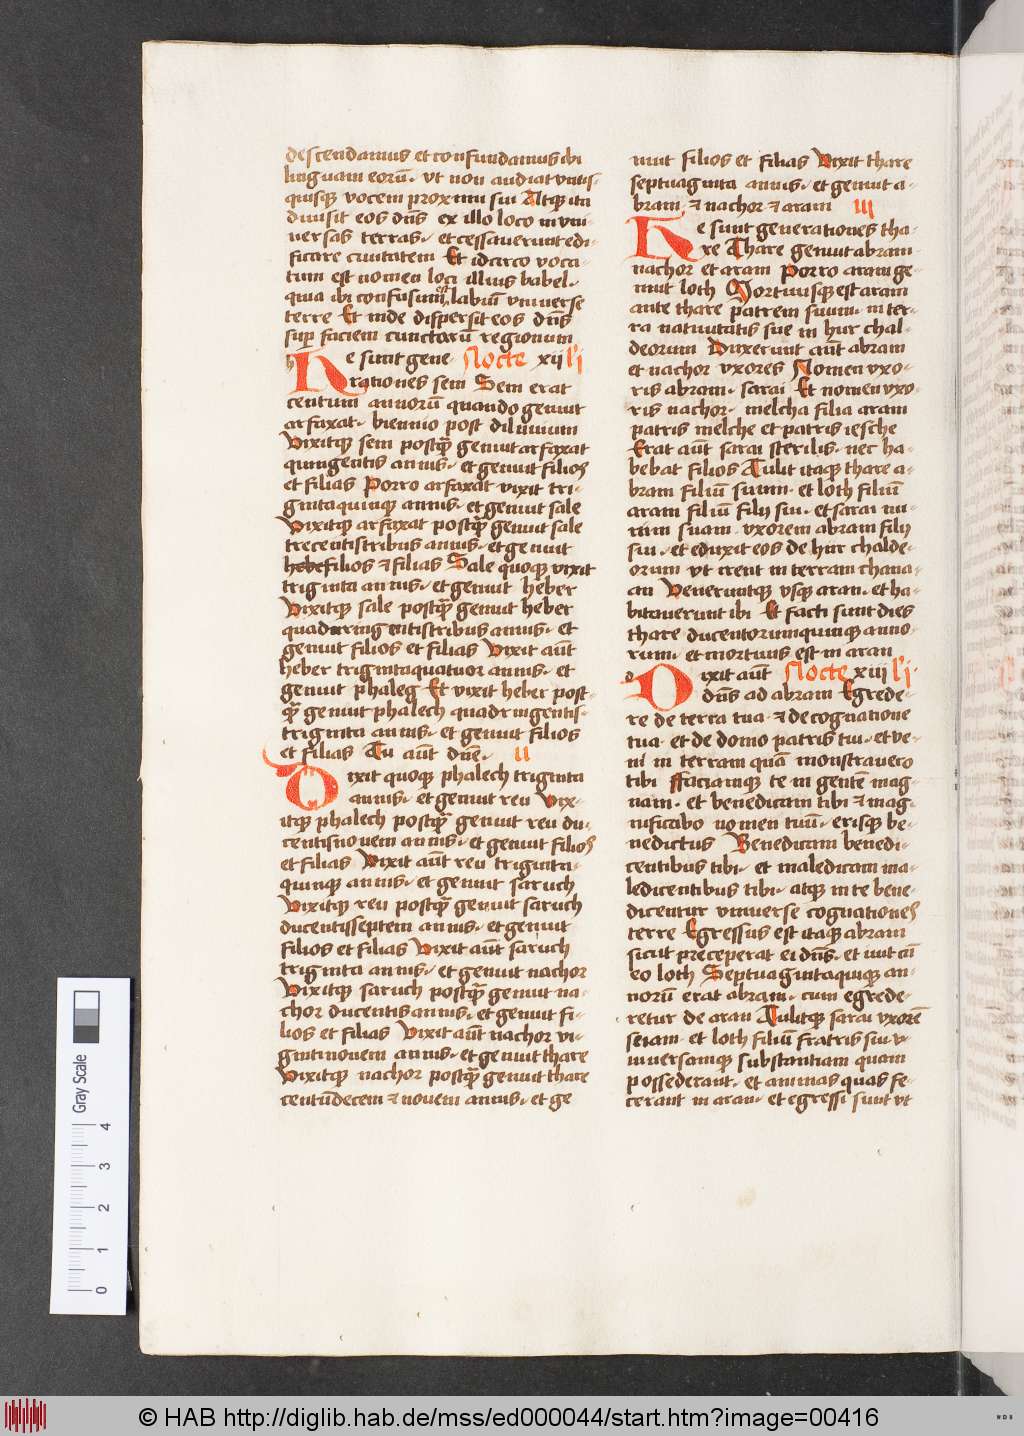 descendamus et confundamus ibi
linguam eorū. vt non audiat vnus-
quisqꝫ vocem proximi sui Atqꝫ ita
diuisit eos dn̄s ex illo loco in vni-
uersas terras. et cessauerunt edi-
ficare ciuitatem Et idcirco voca-
tum est nomen loci illius babel.
quia ibi confusum est labiū vniuerse
terre Et inde dispersit eos dn̄s
suꝑ faciem cunctarū regionum
He sunt gene- Nocte xii li
rationes sem Sem erat
centum annorū quando genuit
arfaxat. biennio post diluuium
Vixitqꝫ sem postqꝫ̄ genuit arfaxat
quingentis annis. et genuit filios
et filias Porro arfaxat vixit tri-
gintaquinqꝫ annis. et genuit sale
Vixitqꝫ arfaxat postqꝫ̄ genuit sale
trecentistribus annis. et genuit
hebe filios ⁊ filias Sale quoqꝫ vixit
triginta annis. et genuit heber
Vixitqꝫ sale postqꝫ̄ genuit heber
quadringentistribus annis. et
genuit filios et filias Vixit aūt
heber trigintaquatuor annis. et
genuit phaleg Et vixit heber post-
qꝫ̄ genuit phalech quadringentis-
triginta annis. et genuit filios
et filias Tu aūt dn̄e. ii
Vixit quoqꝫ phalech triginta
annis. et genuit reu Vix-
itqꝫ phalech postqꝫ̄ genuit reu du-
centisnouem annis. et genuit filios
et filias Vixit aūt reu triginta-
quinqꝫ annis. et genuit saruch
Vixitqꝫ reu postqꝫ̄ genuit saruch
ducentisseptem annis. et genuit
filios et filias Vixit aūt saruch
triginta annis. et genuit nachor
Vixitqꝫ saruch postqꝫ̄ genuit na-
chor ducentis annis. et genuit fi-
lios et filias Vixit aūt nachor vi-
gintinouem annis. et genuit thare
Vixitqꝫ nachor postqꝫ̄ genuit thare
centūdecem ⁊ nouem annis. et ge
nuit filios et filias Vixit thare
septuaginta annis. et genuit a-
bram ⁊ nachor ⁊ aram iii
He sunt generationes tha-
re Thare genuit abram
nachor et aram Porro aram ge-
nuit loth Mortuusqꝫ est aram
ante thare patrem suum. in ter-
ra natiuitatis sue in hur chal-
deorum Duxerunt aūt abram
et nachor vxores Nomen vxo-
ris abram. sarai Et nomen vxo
ris nachor. melcha filia aram
patris melche et patris iesche
Erat aūt sarai sterilis. nec ha-
bebat filios Tulit itaqꝫ thare a-
bram filiū suum. et loth filiū
aram filiū filij sui. et sarai nu-
rum suam. vxorem abram filij
sui. et eduxit eos de hur chalde-
orum vt irent in terram chana-
an Veneruntqꝫ vsqꝫ aran. et ha-
bitauerunt ibi Et facti sunt dies
thare ducentorumquinqꝫ anno-
rum. et mortuus est in aran
Dixit aūt Nocte xiii li
dn̄s ad abram Egrede-
re de terra tua ⁊ de cognatione
tua. et de domo patris tui. et ve-
ni in terram quā monstrauero
tibi Faciamqꝫ te in gentē mag-
nam. et benedicam tibi ⁊ mag-
nificabo nomen tuū. erisqꝫ be-
nedictus Benedicam benedi-
centibus tibi. et maledicam ma-
ledicentibus tibi. atqꝫ in te bene-
dicentur vniuerse cognationes
terre Egressus est itaqꝫ abram
sicut preceperat ei dn̄s. et iuit cū
eo loth Septuagintaquinqꝫ an-
norū erat abram. cum egrede-
retur de aran Tulitqꝫ sarai vxorē
suam. et loth filiū fratris sui. v-
niuersamqꝫ substantiam quam
possederant. et animas quas fe-
cerant in aran. et egressi sunt vt
Gray Scale
0 1 2 3 4
© HAB http://diglib.hab.de/mss/ed000044/start.htm?image=00416